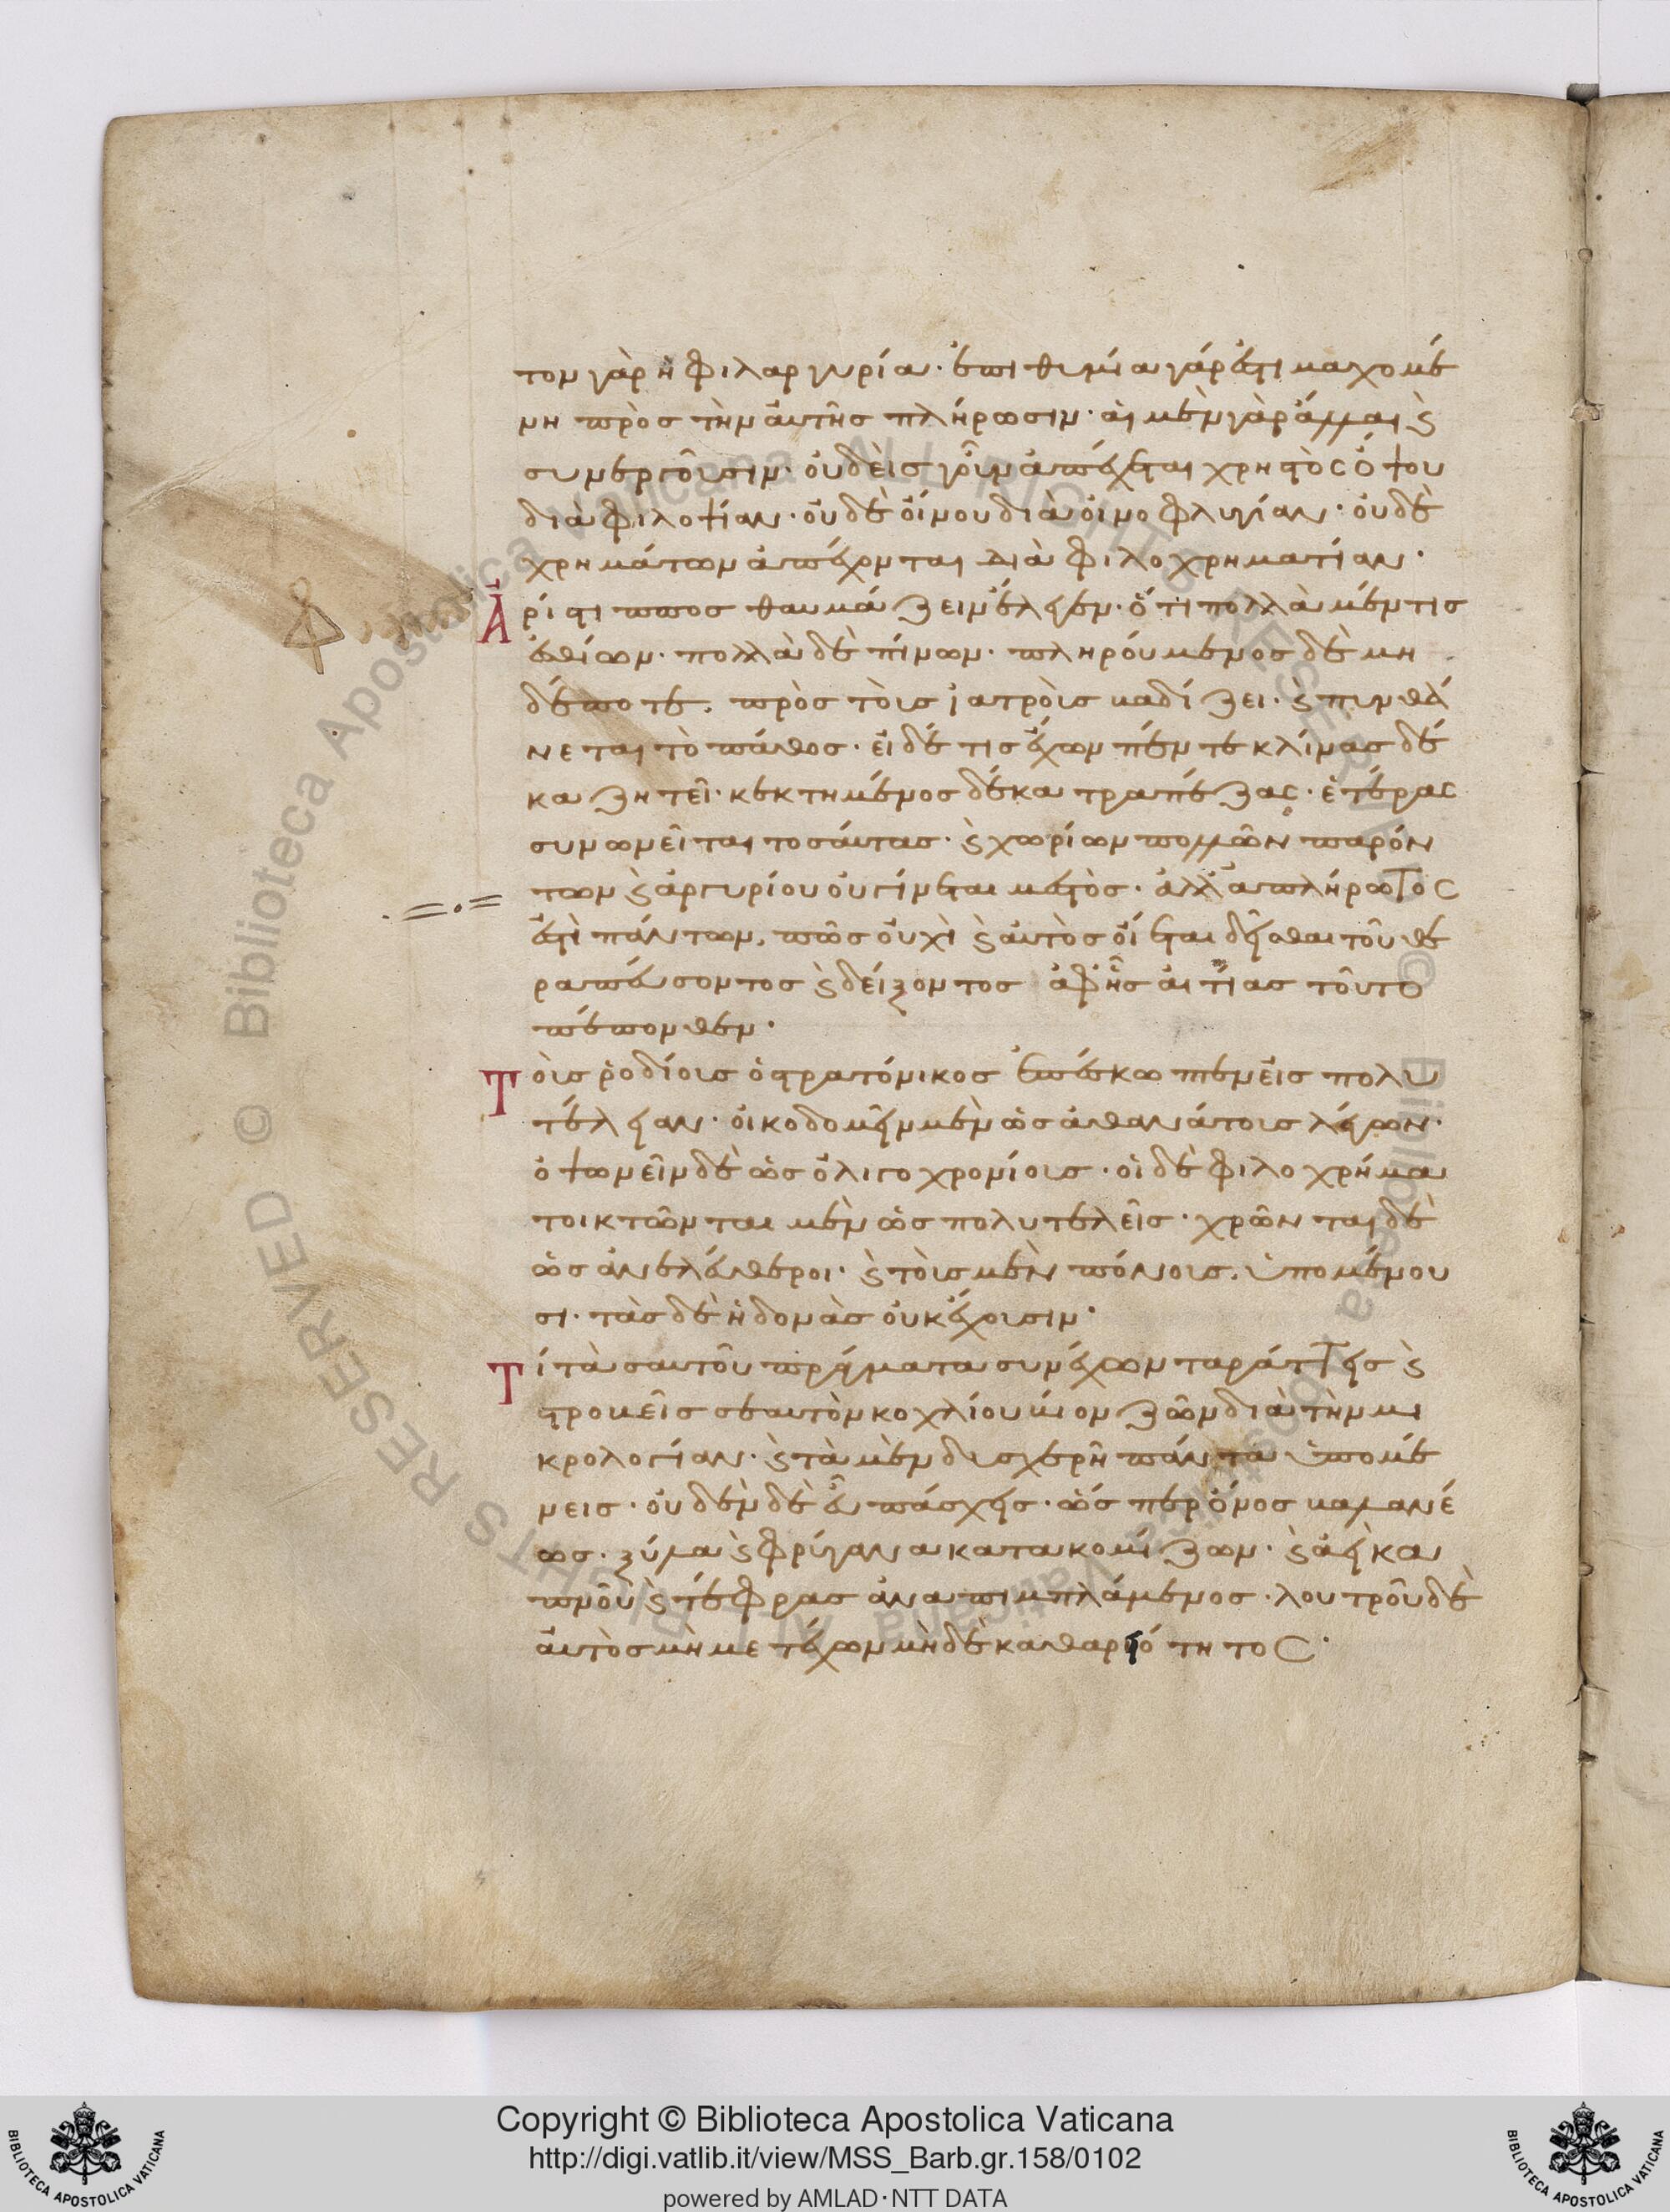 τον γὰρ ἡ φιλαργυρία· ἐπιθυμία γάρ ἐστι μαχομέ
νη πρὸς τὴν ἀυτῆς πλήρωσιν· ἁι μὲν γὰρ ἄλλαι ϗ
συνεργοῦσιν· οὐδεὶς γοῦν ἀπέχεται χρηστὸς ὄψου
διὰ φιλοψίαν· οὐδὲ οἴνου διὰ οἰνοφλυγίαν· οὐδὲ
χρημάτων ἀπέχονται διὰ φιλοχρηματίαν·
Ἀρίστιππος θαυμάζειν ἔλεγεν· ὅτι πολλὰ μέν τις
ἐσθίων· πολλὰ δὲ πίνων· πληρούμενος δὲ μη
δέποτε. πρὸς τοὺς ἰατροὺς βαδίζει· ϗ πυνθά
νεται τὸ πάθος· εἰ δέ τις ἔχων πέντε κλίνας δέ
κα ζητεῖ· κεκτημένος δέκα τραπέζας· ἑτέρας
συνωνεῖται τοσάυτας· ϗ χωρίων πολλῶν παρόν
των ϗ ἀργυρίου οὐ γίνεται μεστὸς· ἀλλ' ἀπλήρωτος
ἐστὶ πάντων, πῶς οὐχὶ ϗ ἀυτὸς οἴεται δεῖσθαι τοῦ θε
ραπεύσοντος ϗ δείξοντος ἀφ' ἧς αἰτίας τοῦτο
πέπονθεν·
Τοὺς ῥοδίους ὁ στρατόνικος ἐπέσκωπτεν εἰς πολυ
τέλειαν· οἰκοδομεῖν μὲν ὡς ἀθανάτους λέγων·
ὀψωνεῖν δὲ ὡς ὀλιγοχρονίους· οἱ δὲ φιλοχρήμα
τοι κτῶνται μὲν ὡς πολυτελεῖς· χρῶνται δὲ
ὡς ἀνελέυθεροι· ϗ τοὺς μὲν πόνους. ὑπομένου
σι· τὰς δὲ ἡδονὰς οὐκ ἔχουσιν·
Τί τὰ σαυτοῦ πράγματα συνέχων ταράττεις ϗ
στροβεῖς σεαυτὸν κοχλίου βίον ζῶν διὰ τὴν μι
κρολογίαν· ϗ τὰ μὲν δυσχερῆ πάντα ὑπομέ
νεις· οὐδὲν δὲ εὖ πάσχεις· ὥς περ ὄνος βαλανέ
ως· ξύλα ϗ φρύγανα κατακομίζων· ϗ ἀεὶ κα
πνοῦ ϗ τέφρας ἀναπιμπλάμενος· λουτροῦ δὲ
ἀυτὸς μὴ μετέχων μὴ δὲ καθαριότητος·
Copyright © Biblioteca Apostolica Vaticana
http://digi.vatlib.it/view/MSS_Barb.gr.158/0102
powered by AMLAD·NTT DATA